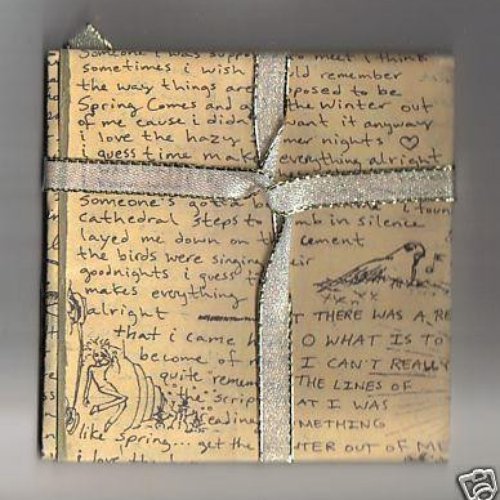 someone i was suppo to meet i think
sometimes i wish ld remember
the way things are posed to be
Spring Comes and a the winter out
of me cause i didn want it anyway
i love the hazy mer nights ♡
i guess time mak everything alright
Someone's gotta b i foun
cathedral steps to mb in silence
layed me down on th cement
the birds were singing heir
goodnights i guess t
makes everything
alright
T THERE WAS A RE
that i came h O WHAT IS TO
become of m I CAN'T REALLY
quite remem THE LINES OF
the scrip AT I WAS
eading METHING
like spring... get the TER OUT OF ME
i love the h